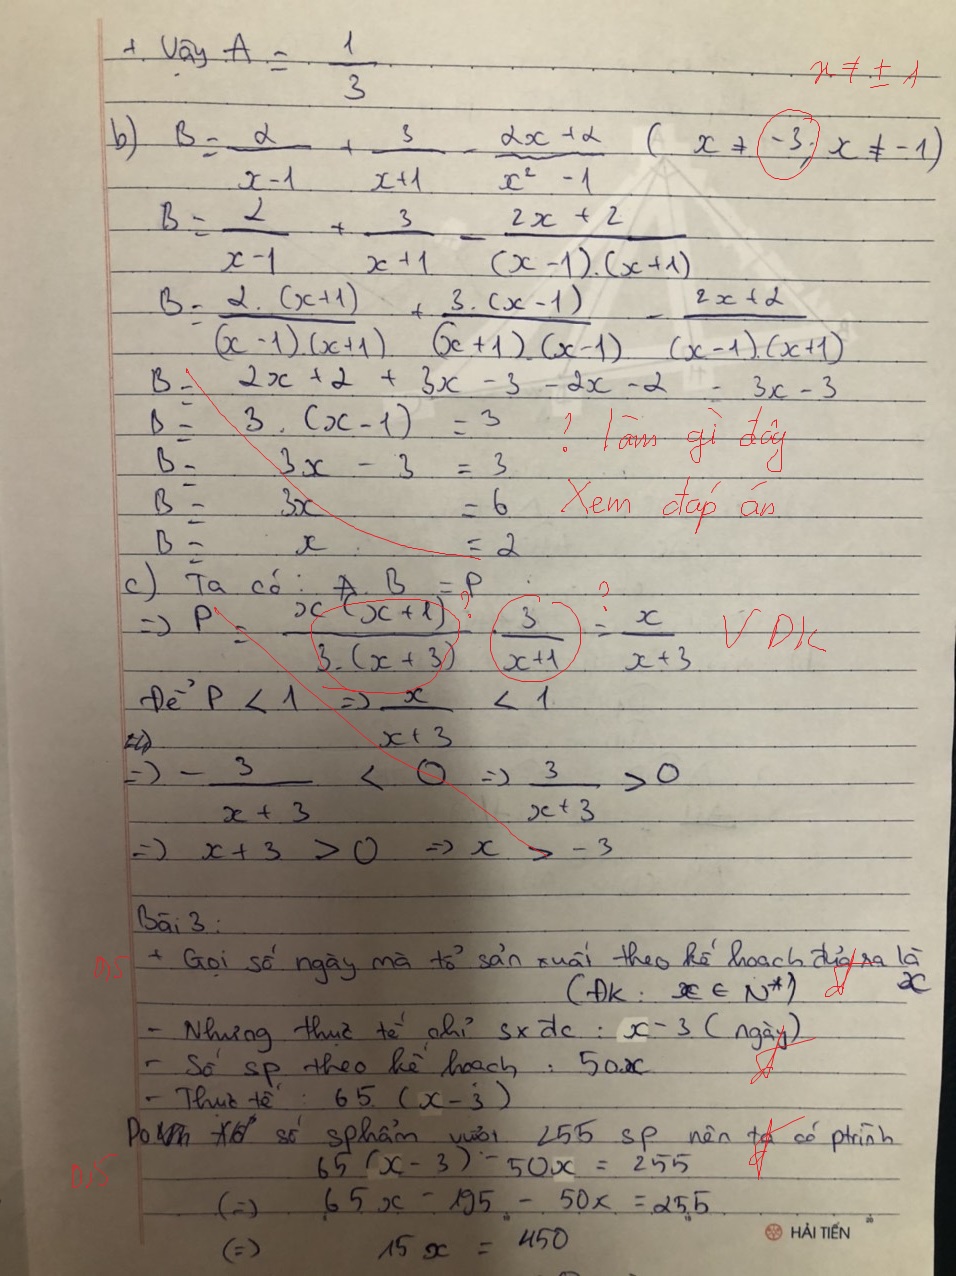 + Vậy A = 1/3
x ≠ ± 1
b) B = 2/(x-1) + 3/(x+1) - (2x+2)/(x² - 1) ( x ≠ -3; x ≠ -1)
B = 2/(x-1) + 3/(x+1) - (2x + 2)/((x-1).(x+1))
B = 2.(x+1)/((x-1).(x+1)) + 3.(x-1)/((x+1).(x-1)) - (2x+2)/((x-1).(x+1))
B = 2x+2 + 3x - 3 - 2x - 2 = 3x - 3
B = 3.(x-1) = 3 ? làm gì đây
B = 3x - 3 = 3
B = 3x = 6 Xem đáp án
B = x = 2
c) Ta có: A.B = P
=> P = x(x+1)/(3.(x+3)) ? . 3/(x+1) ? = x/(x+3) V ĐK
Để P < 1 => x/(x+3) < 1
=> - 3/(x+3) < 0 => 3/(x+3) > 0
=> x+3 > 0 => x > -3
Bài 3:
0,5 + Gọi số ngày mà tổ sản xuất theo kế hoạch đưa ra là x
(ĐK: x ∈ N*)
- Nhưng thực tế chỉ sx đc : x-3 (ngày)
- Số sp theo kế hoạch : 50x
- Thực tế : 65.(x-3)
số sphẩm vượt 255 sp nên ta có ptrình
0,5 65(x-3) - 50x = 255
(=) 65x - 195 - 50x = 255
(=) 15x = 450
HẢI TIẾN